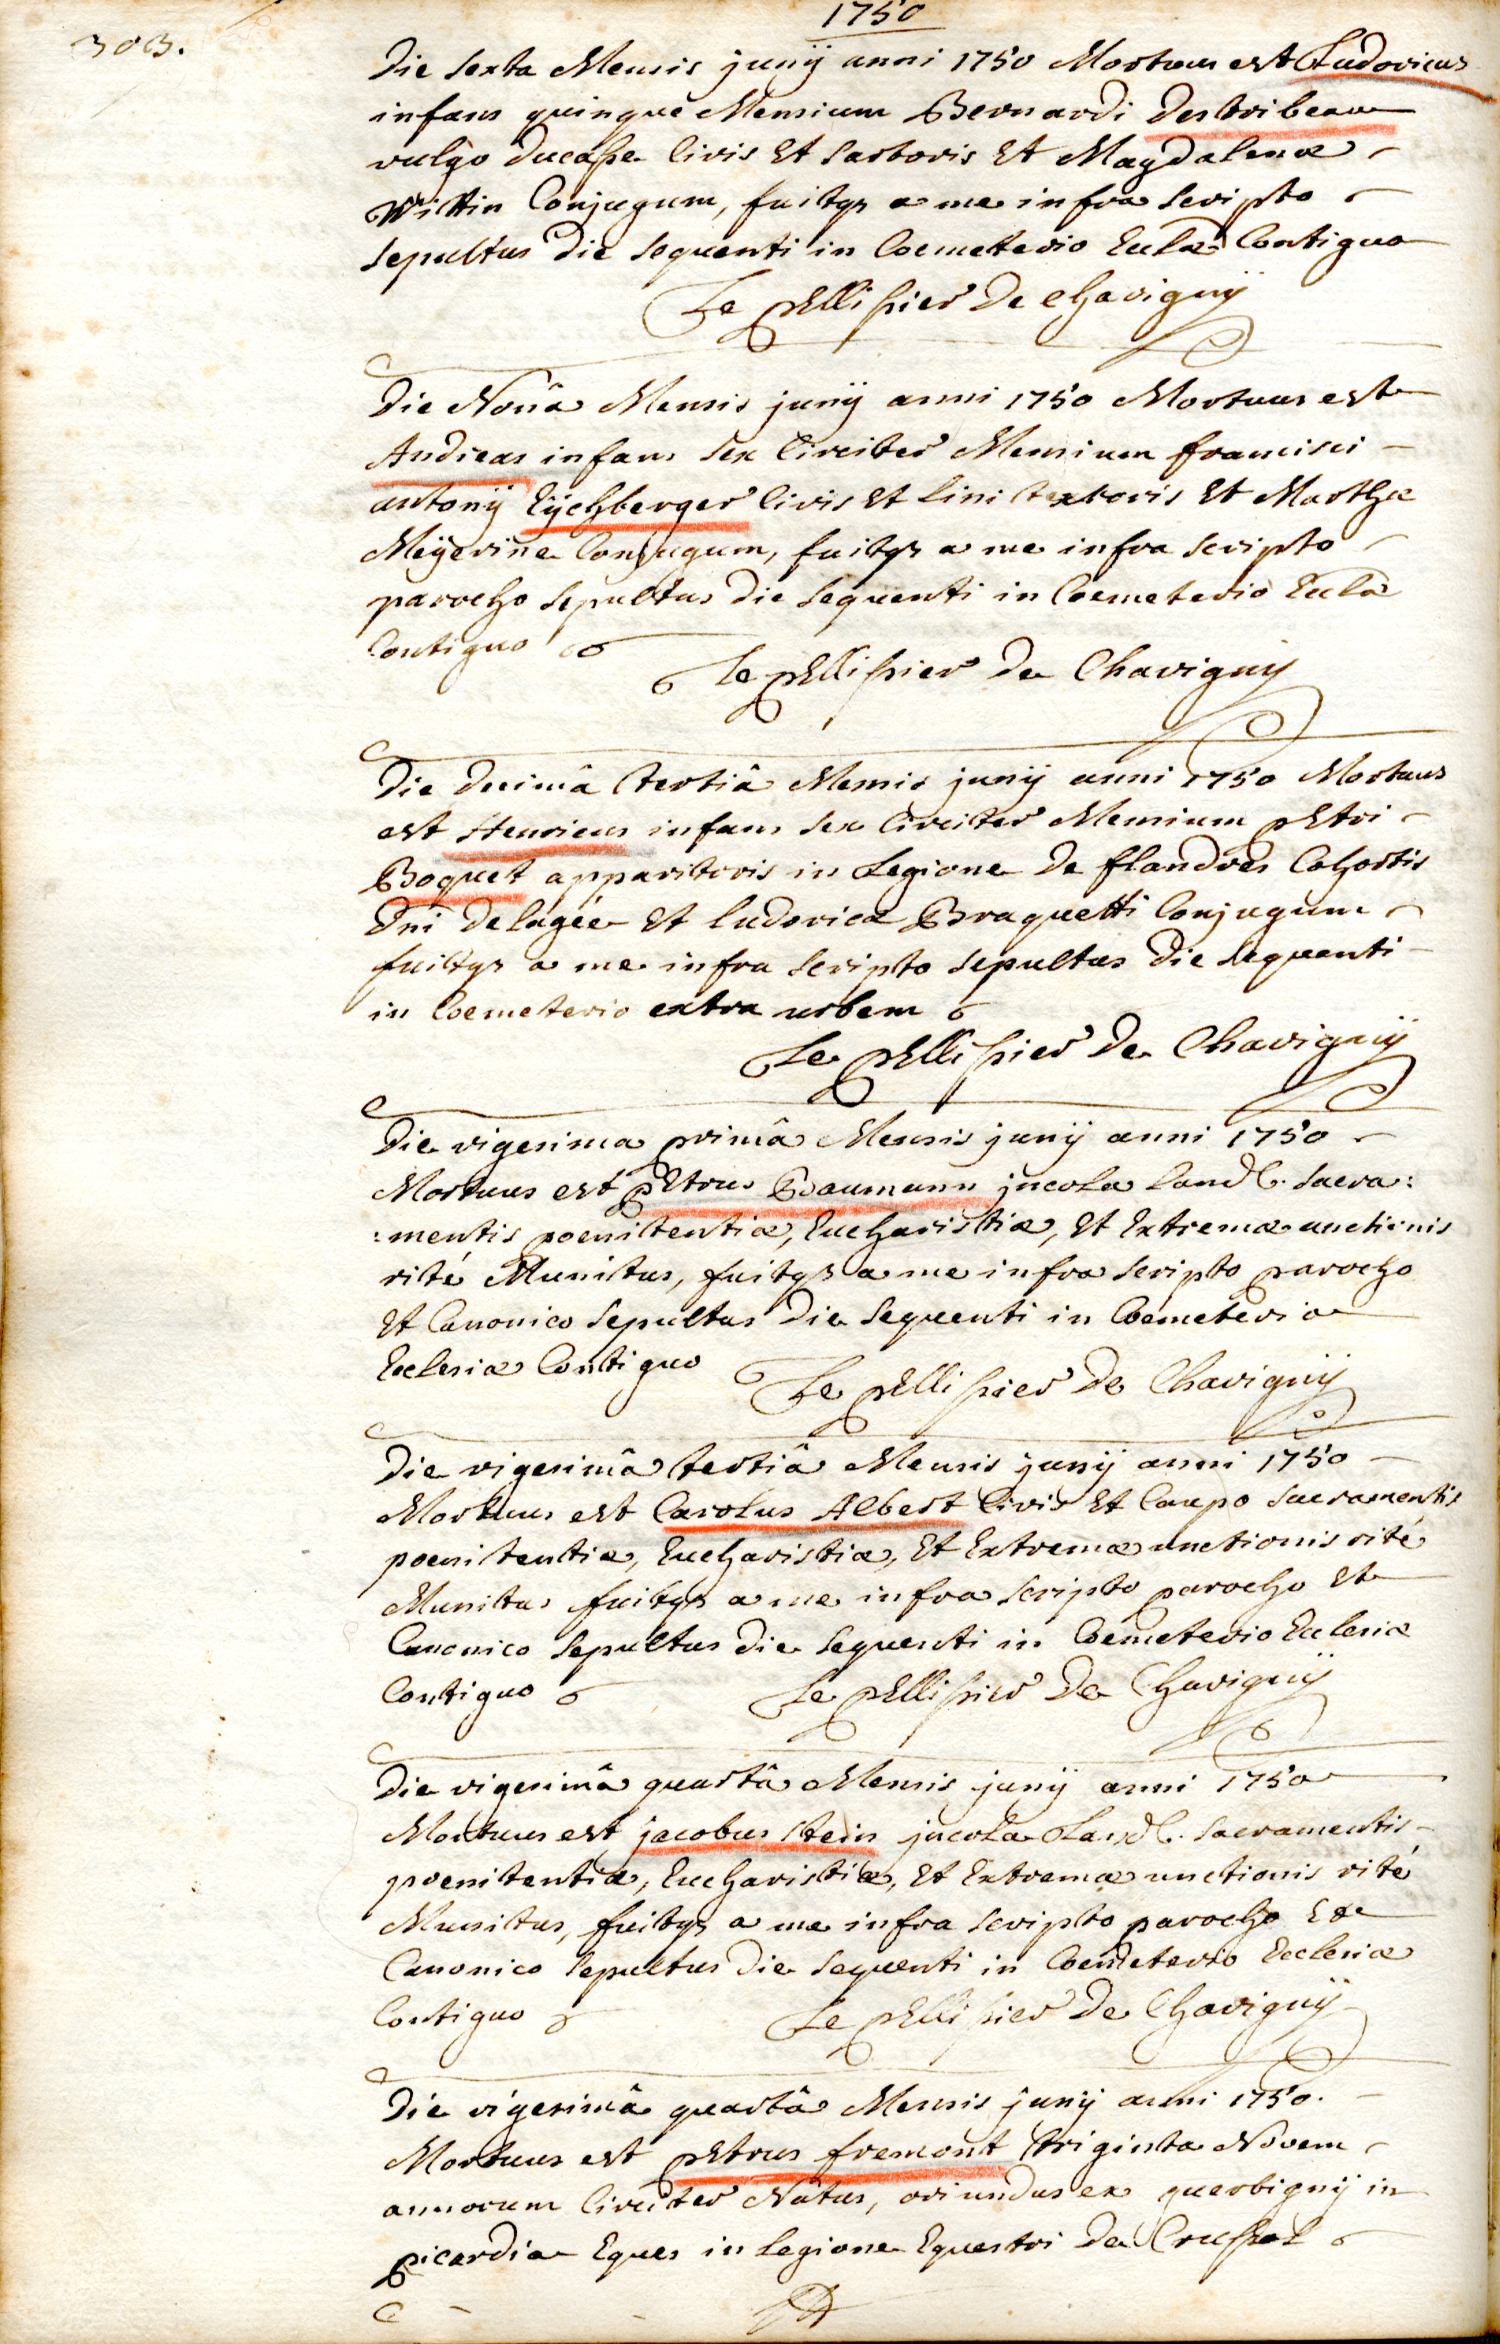 1750
303.
Die Sexta Mensis junij anni 1750 Mortuus est Ludovicus
infans quinque Mensium Bernardi Destribeau
vulgo Ducasse Civis Et Sartoris Et Magdalenæ
Wittin Conjugum, fuitqs a me infra scripto
sepultus Die sequenti in Coemeterio Eclæ Contiguo
Le pEllissier De Chavignij
Die Nonâ Mensis junij anni 1750 Mortuus est
Andreas infans sex Circiter Mensium francisci
antonij Eijchberger Civis Et lini textoris Et Marthæ
Meijerine Conjugum, fuitqs a me infra scripto
parocho sepultus Die sequenti in Coemeterio Eclæ
Contiguo
Le pEllissier De Chavignij
Die Decimâ tertiâ Mensis junij anni 1750 Mortuus
est Henricus infans sex Circiter Mensium pEtri
Boquet apparitoris in Legione De flandres Cohortis
Dni Delagée Et ludovicæ Braquetti Conjugum
fuitqs a me infra scripto sepultus Die sequenti
in Coemeterio extra urbem
Le pEllissier De Chavignij
Die vigesima primâ Mensis junij anni 1750
Mortuus est pEtrus Baumann jncola Land. Sacra:
:mentis poenitentiæ, Eucharistiæ, Et Extremæ unctionis
rité Munitus, fuitqs a me infra scripto parocho
Et Canonico sepultus Die sequenti in Coemeterio
Ecclesiæ Contiguo
Le pEllissier De Chavignij
Die vigesimâ tertiâ Mensis junij anni 1750
Mortuus est Carolus Albert Civis Et Caupo Sacramentis
poenitentiæ, Eucharistiæ, Et Extremæ unctionis rité
Munitus fuitqs a me infra scripto parocho Et
Canonico sepultus Die sequenti in Coemeterio Ecclesiæ
Contiguo
Le pEllissier De Chavignij
Die vigesimâ quartâ Mensis junij anni 1750
Mortuus est jacobus Stein jncola Land. Sacramentis
poenitentiæ, Eucharistiæ, Et Extremæ unctionis rité
Munitus, fuitqs a me infra scripto parocho Et
Canonico sepultus Die sequenti in Coemeterio Ecclesiæ
Contiguo
Le pEllissier De Chavignij
Die vigesimâ quartâ Mensis junij anni 1750.
Mortuus est pEtrus fremont triginta Novem
annorum Circiter Natus, oriundus ex querbignij in
picardia Eques in legione Equestri De Crussol